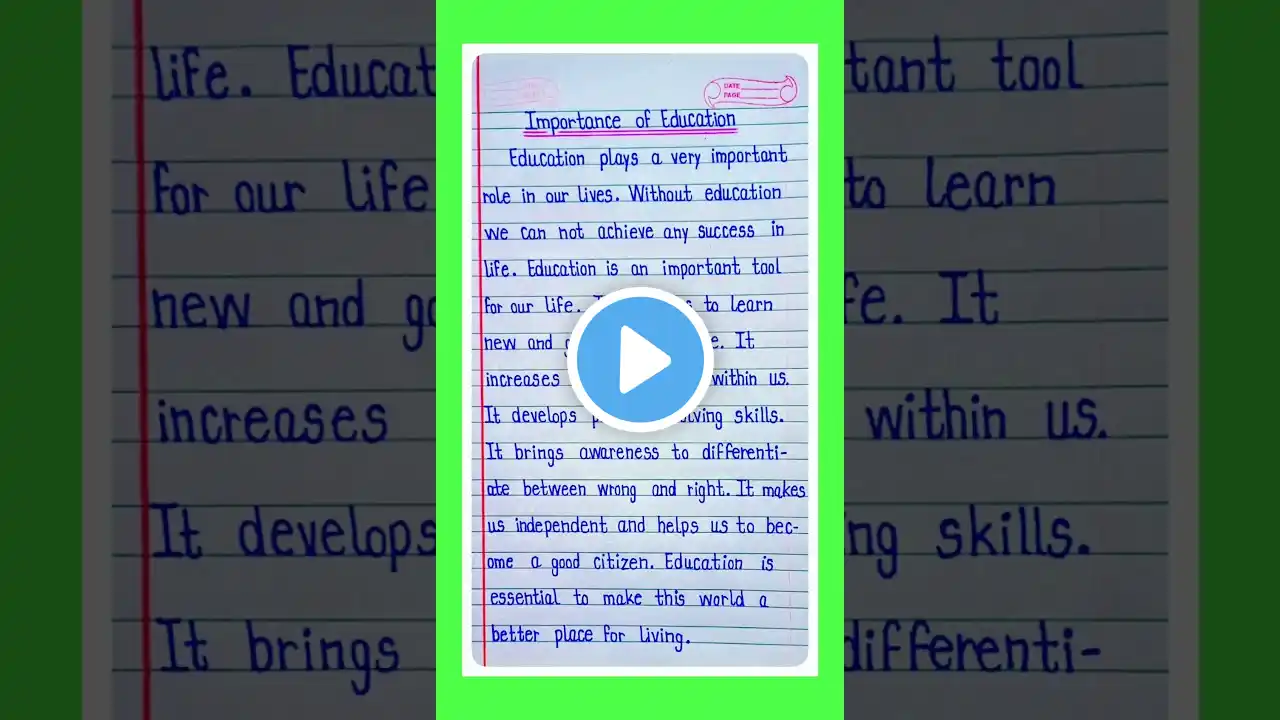 DATE
PAGE
Importance of Education
Education plays a very important
role in our lives. Without education
we can not achieve any success in
life. Education is an important tool
for our life. to learn
new and It
increases within us.
It develops skills.
It brings awareness to differenti-
ate between wrong and right. It makes
us independent and helps us to bec-
ome a good citizen. Education is
essential to make this world a
better place for living.